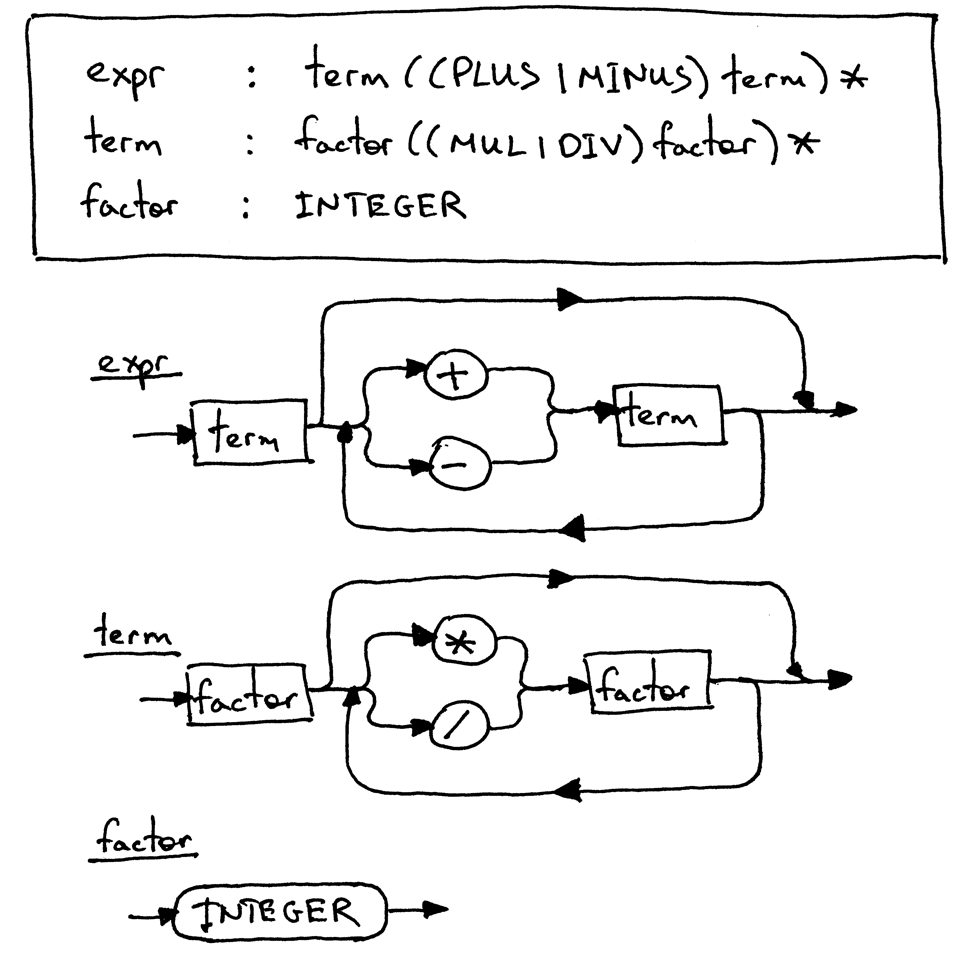 expr : term ((PLUS | MINUS) term) *
term : factor ((MUL | DIV) factor) *
factor : INTEGER
expr
+
term
term
-
term
*
factor
factor
/
factor
INTEGER